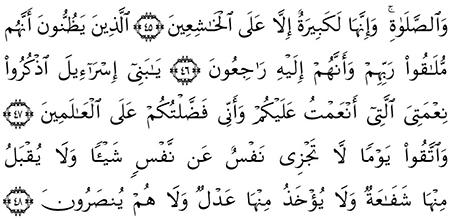 وَٱلصَّلَوٰةِۚ وَإِنَّهَا لَكَبِيرَةٌ إِلَّا عَلَى ٱلْخَٰشِعِينَ ﴿٤٥﴾ ٱلَّذِينَ يَظُنُّونَ أَنَّهُم
مُّلَٰقُواْ رَبِّهِمْ وَأَنَّهُمْ إِلَيْهِ رَٰجِعُونَ ﴿٤٦﴾ يَٰبَنِىٓ إِسْرَٰٓءِيلَ ٱذْكُرُواْ
نِعْمَتِىَ ٱلَّتِىٓ أَنْعَمْتُ عَلَيْكُمْ وَأَنِّى فَضَّلْتُكُمْ عَلَى ٱلْعَٰلَمِينَ ﴿٤٧﴾
وَٱتَّقُواْ يَوْمًا لَّا تَجْزِى نَفْسٌ عَن نَّفْسٍ شَيْـًٔا وَلَا يُقْبَلُ
مِنْهَا شَفَٰعَةٌ وَلَا يُؤْخَذُ مِنْهَا عَدْلٌ وَلَا هُمْ يُنصَرُونَ ﴿٤٨﴾